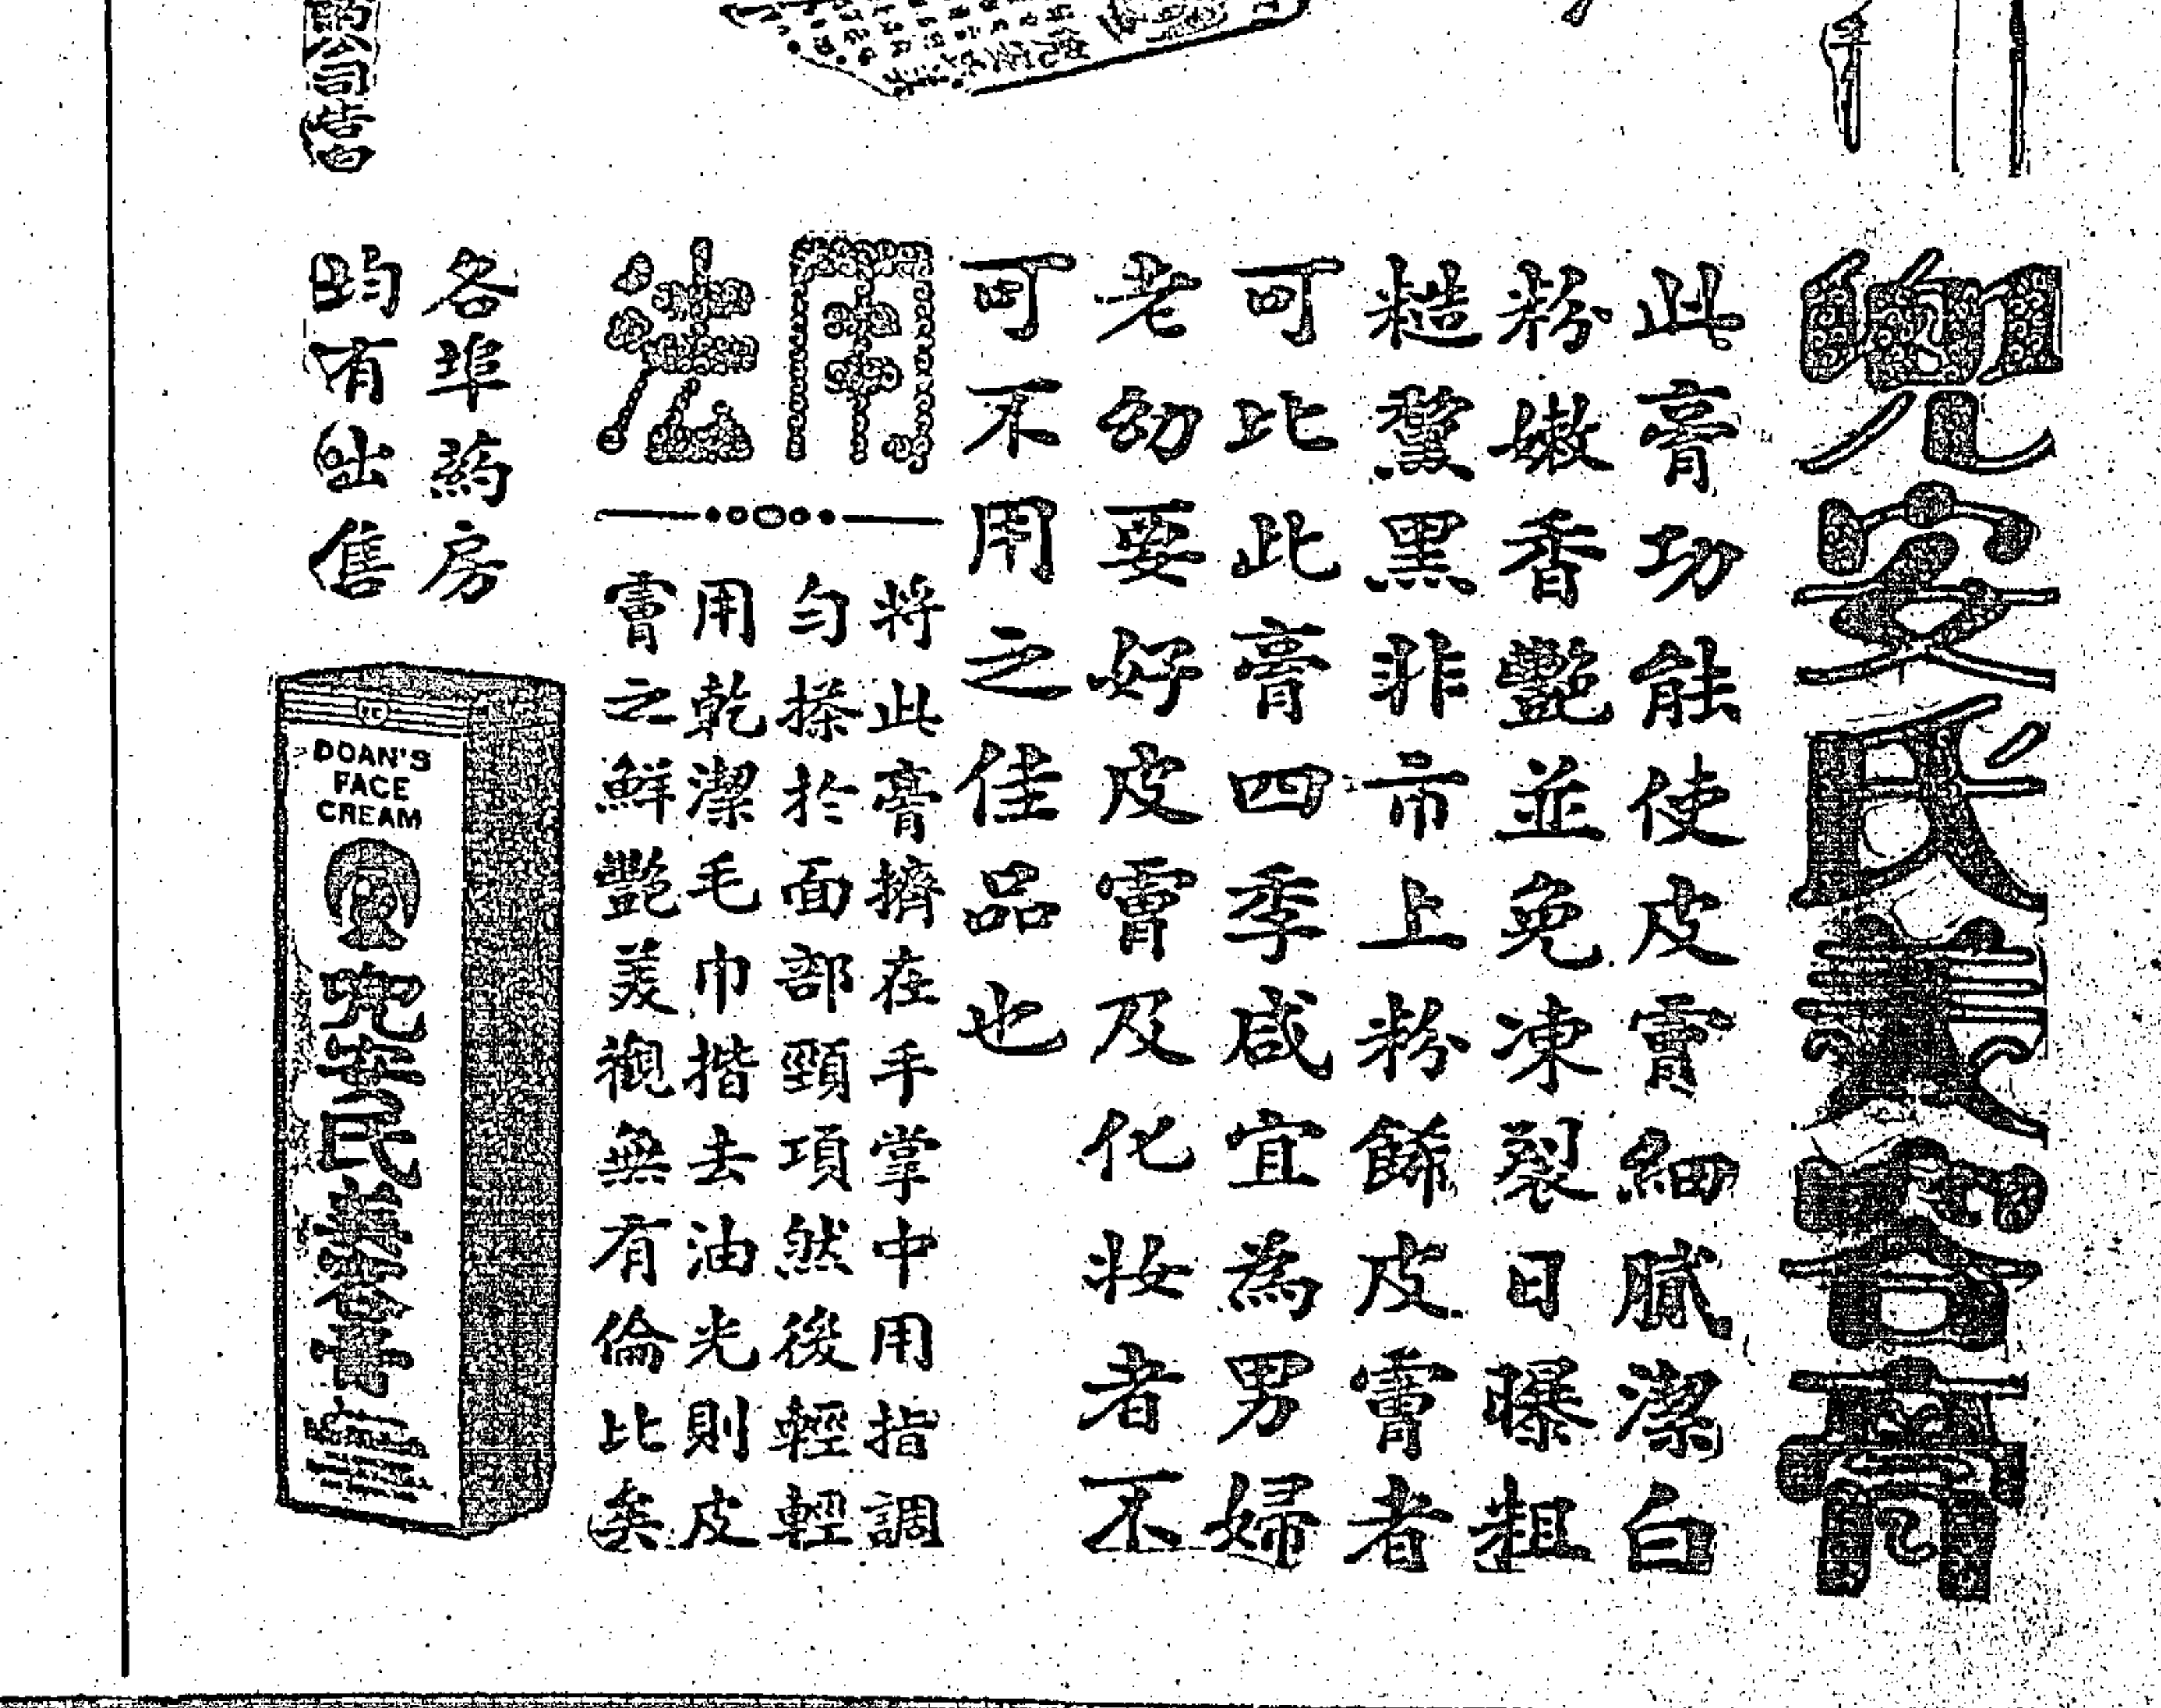 兜安氏美容膏
此膏功能使皮膚細膩潔白
粉嫩香艷並免凍裂日曝粗
糙黧黑非市上粉餙皮膚者
可比此膏四季咸宜為男婦
老幼要好皮膚及化妝者不
可不用之佳品也
用法
將此膏擠在手掌中用指調
勻搽於面部頸項然後輕輕
用乾潔毛巾揩去油光則皮
膚之鮮艷美觀無有倫比矣
各埠藥房
均有出售
DOAN'S
FACE
CREAM
兜安氏美容膏
公司啓